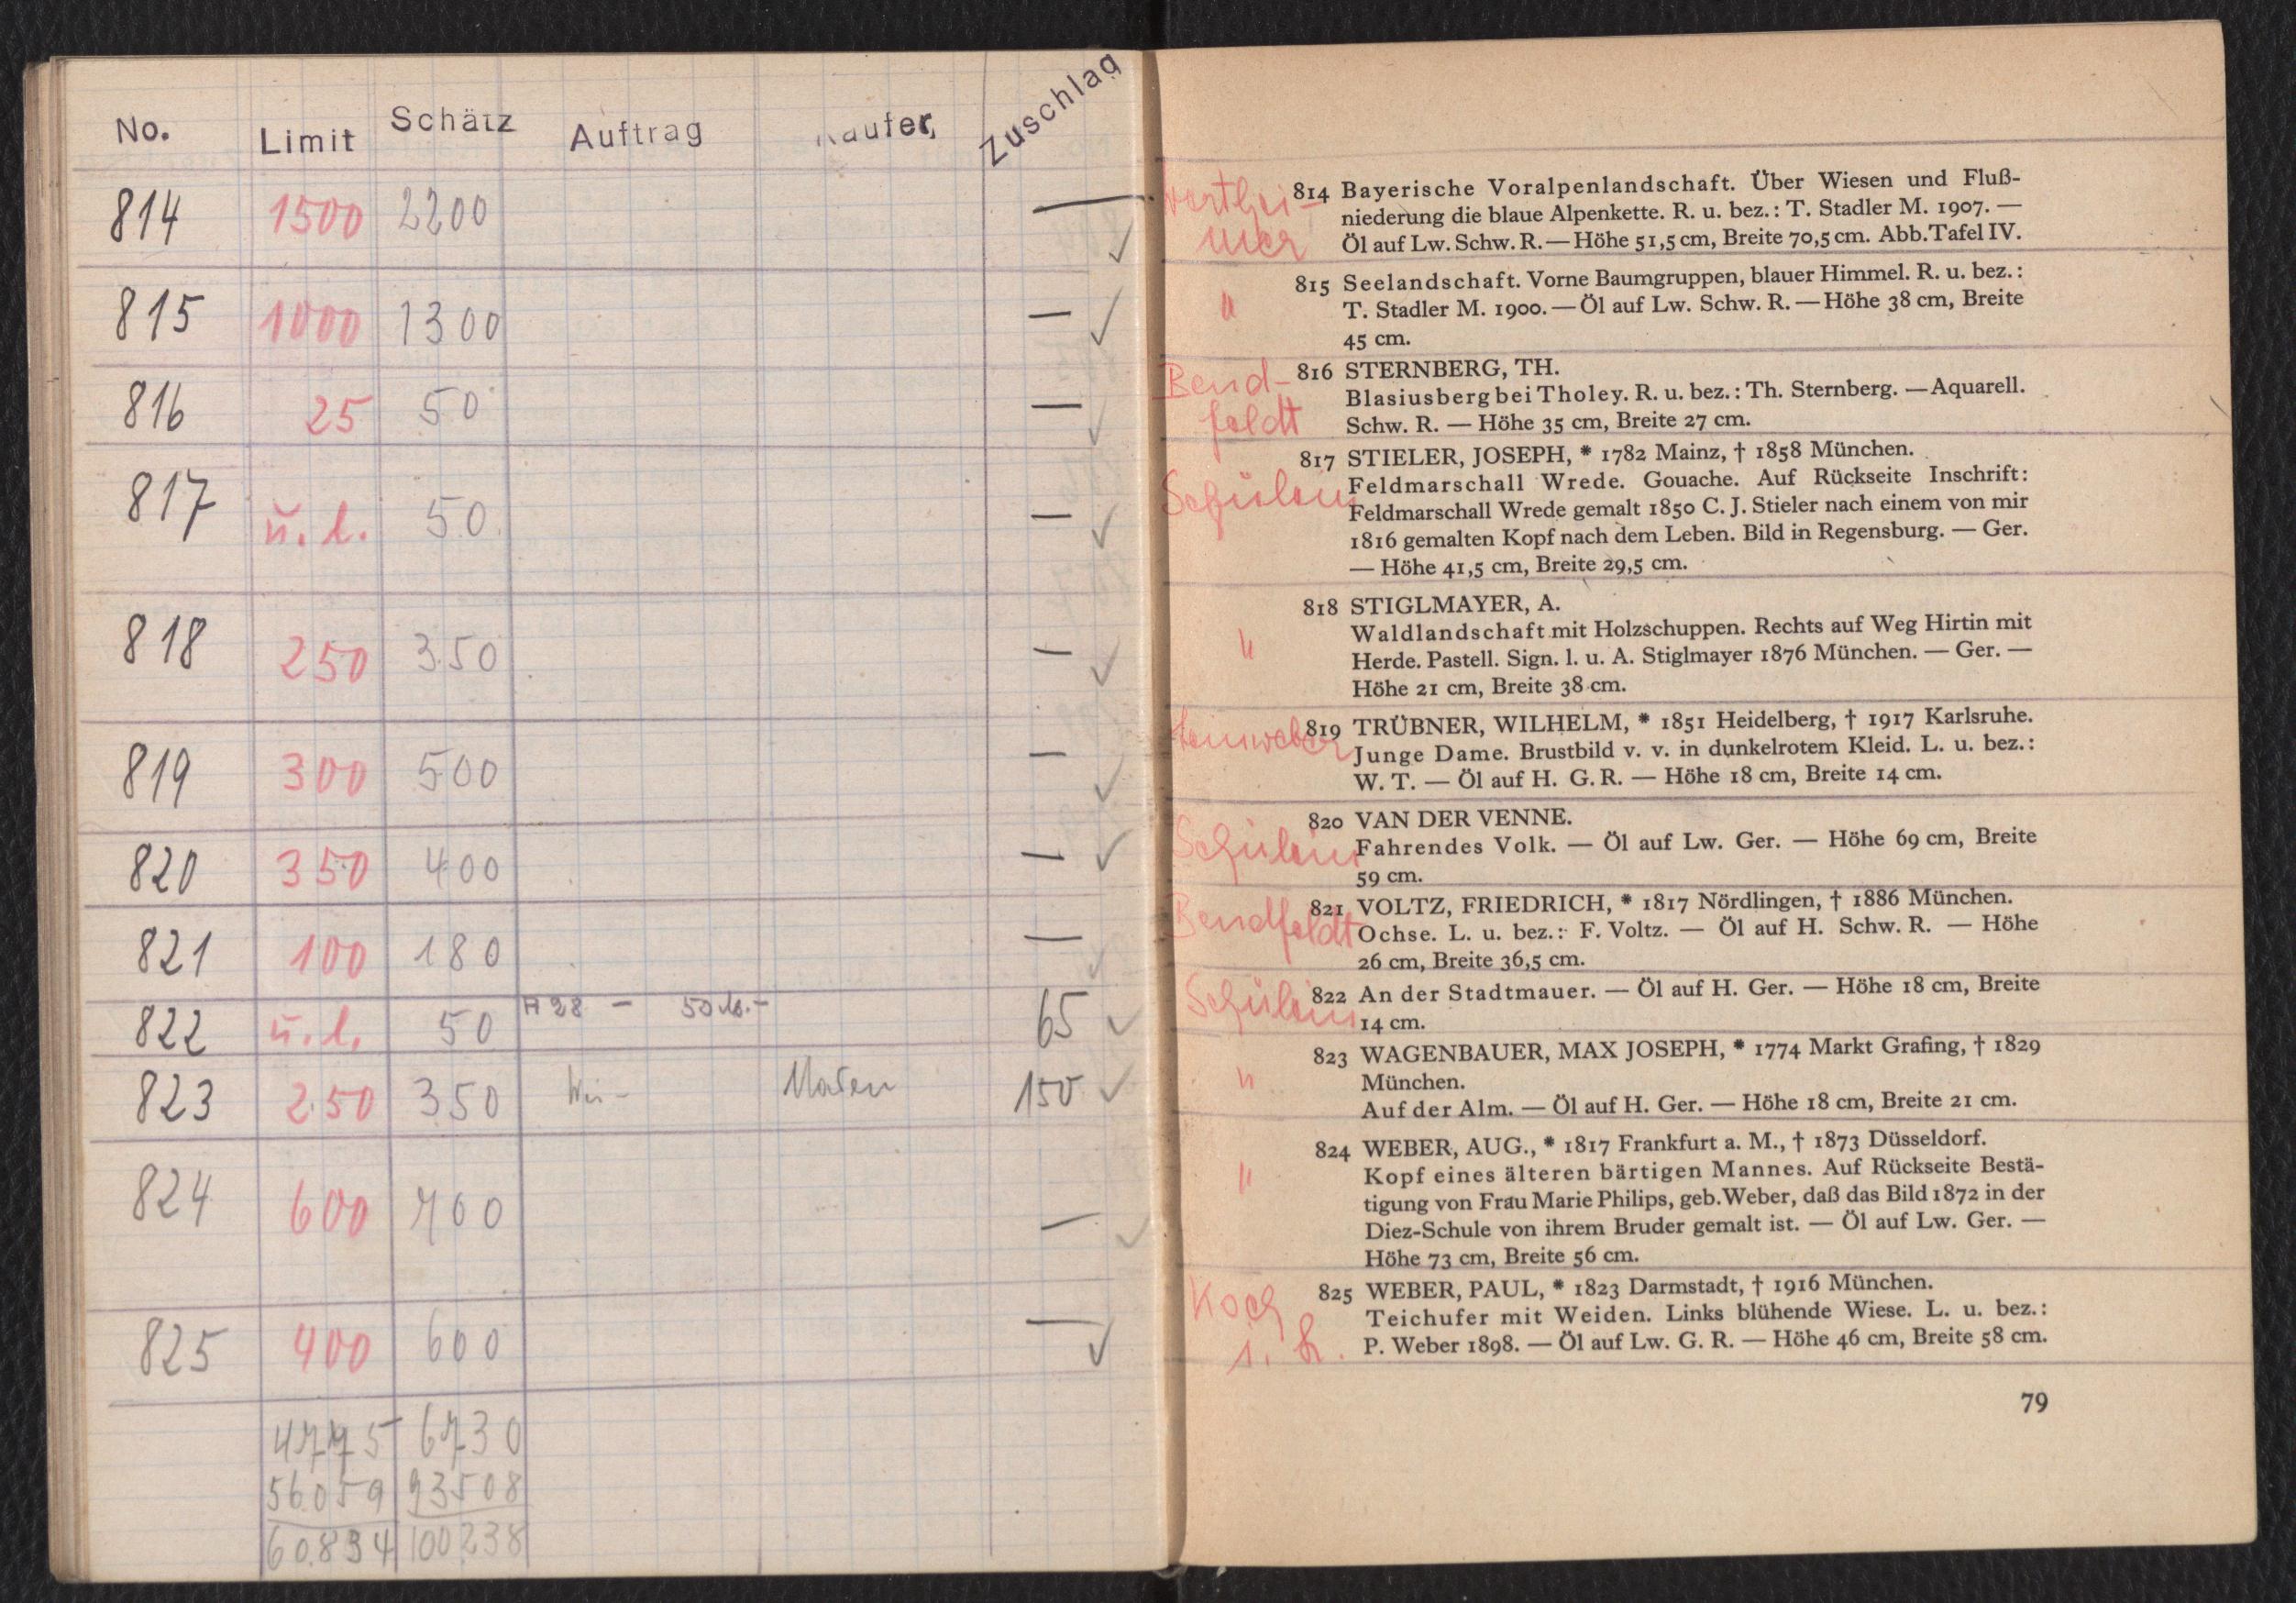 No. Limit Schätz Auftrag Käufer, Zuschlag
814 1500 2200 — ✓
815 1000 1300 — ✓
816 25 50 — ✓
817 u. l. 50 — ✓
818 250 350 — ✓
819 300 500 — ✓
820 350 400 — ✓
821 100 180 — ✓
822 u. l. 50 A 28 — 50 M.- 65 ✓
823 250 350 150 ✓
824 600 700 — ✓
825 400 600 — ✓
4775 6730
56059 93508
60.834 100238
Werthei- 814 Bayerische Voralpenlandschaft. Über Wiesen und Fluß-
niederung die blaue Alpenkette. R. u. bez.: T. Stadler M. 1907. —
mer Öl auf Lw. Schw. R. — Höhe 51,5 cm, Breite 70,5 cm. Abb. Tafel IV.
" 815 Seelandschaft. Vorne Baumgruppen, blauer Himmel. R. u. bez.:
T. Stadler M. 1900. — Öl auf Lw. Schw. R. — Höhe 38 cm, Breite
45 cm.
Bend- 816 STERNBERG, TH.
Blasiusberg bei Tholey. R. u. bez.: Th. Sternberg. — Aquarell.
feldt Schw. R. — Höhe 35 cm, Breite 27 cm.
817 STIELER, JOSEPH, * 1782 Mainz, † 1858 München.
Schülein Feldmarschall Wrede. Gouache. Auf Rückseite Inschrift:
Feldmarschall Wrede gemalt 1850 C. J. Stieler nach einem von mir
1816 gemalten Kopf nach dem Leben. Bild in Regensburg. — Ger.
— Höhe 41,5 cm, Breite 29,5 cm.
818 STIGLMAYER, A.
Waldlandschaft mit Holzschuppen. Rechts auf Weg Hirtin mit
" Herde. Pastell. Sign. l. u. A. Stiglmayer 1876 München. — Ger. —
Höhe 21 cm, Breite 38 cm.
819 TRÜBNER, WILHELM, * 1851 Heidelberg, † 1917 Karlsruhe.
Junge Dame. Brustbild v. v. in dunkelrotem Kleid. L. u. bez.:
W. T. — Öl auf H. G. R. — Höhe 18 cm, Breite 14 cm.
820 VAN DER VENNE.
Schülein Fahrendes Volk. — Öl auf Lw. Ger. — Höhe 69 cm, Breite
59 cm.
821 VOLTZ, FRIEDRICH, * 1817 Nördlingen, † 1886 München.
Bendfeldt Ochse. L. u. bez.: F. Voltz. — Öl auf H. Schw. R. — Höhe
26 cm, Breite 36,5 cm.
Schülein 822 An der Stadtmauer. — Öl auf H. Ger. — Höhe 18 cm, Breite
14 cm.
823 WAGENBAUER, MAX JOSEPH, * 1774 Markt Grafing, † 1829
" München.
Auf der Alm. — Öl auf H. Ger. — Höhe 18 cm, Breite 21 cm.
824 WEBER, AUG., * 1817 Frankfurt a. M., † 1873 Düsseldorf.
" Kopf eines älteren bärtigen Mannes. Auf Rückseite Bestä-
tigung von Frau Marie Philips, geb. Weber, daß das Bild 1872 in der
Diez-Schule von ihrem Bruder gemalt ist. — Öl auf Lw. Ger. —
Höhe 73 cm, Breite 56 cm.
Koch 825 WEBER, PAUL, * 1823 Darmstadt, † 1916 München.
Teichufer mit Weiden. Links blühende Wiese. L. u. bez.:
P. Weber 1898. — Öl auf Lw. G. R. — Höhe 46 cm, Breite 58 cm.
79